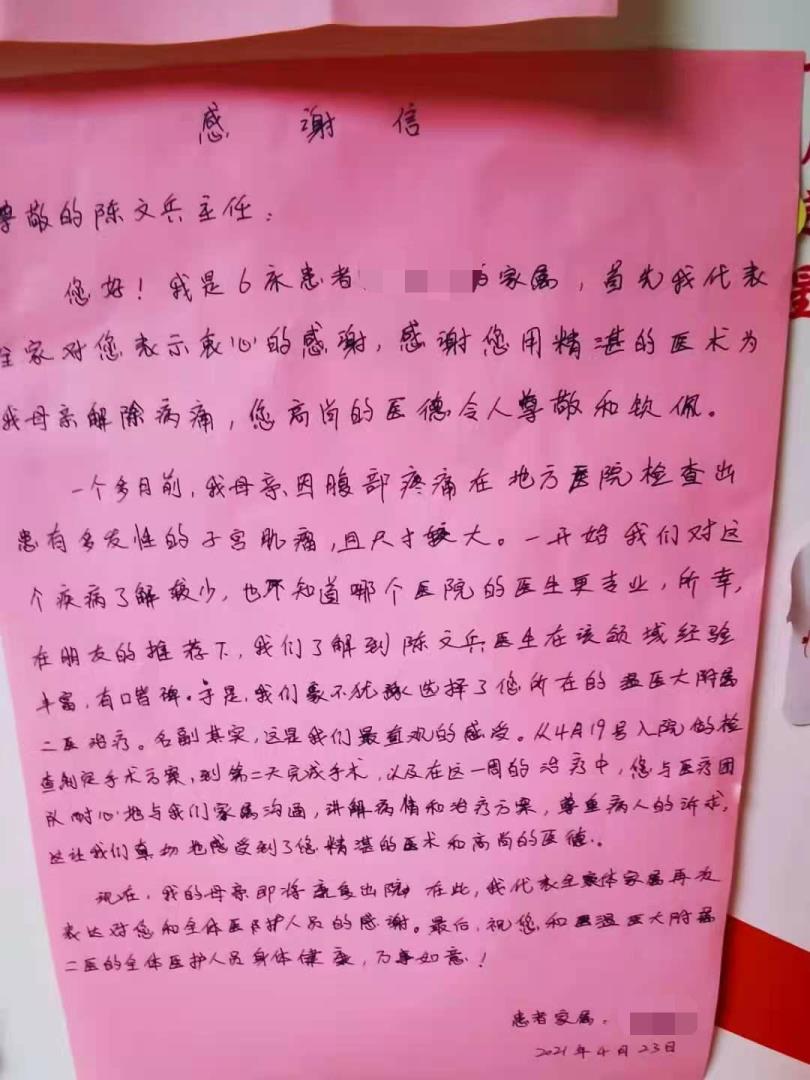 感谢信
尊敬的陈文兵主任：
您好！我是6床患者 家属，首先我代表
全家对您表示衷心的感谢，感谢您用精湛的医术为
我母亲解除病痛，您高尚的医德令人尊敬和钦佩。
一个多月前，我母亲因腹部疼痛在地方医院检查出
患有多发性的子宫肌瘤，且尺寸较大。一开始我们对这
个疾病了解较少，也不知道哪个医院的医生更专业，所幸，
在朋友的推荐下，我们了解到陈文兵医生在该领域经验
丰富，有口皆碑。于是，我们毫不犹豫选择了您所在的温医大附属
二医治疗。名副其实，这是我们最直观的感受。从4月19号入院做检
查制定手术方案，到第二天完成手术，以及在这一周的治疗中，您与医疗团
队耐心地与我们家属沟通，讲解病情和治疗方案，尊重病人的诉求，
这让我们真切地感受到了您精湛的医术和高尚的医德。
现在，我的母亲即将康复出院，在此，我代表全家体家属再次
表达对您和全体医护人员的感谢。最后，祝您和温医大附属
二医的全体医护人员身体健康，万事如意！
患者家属：
2021年4月23日